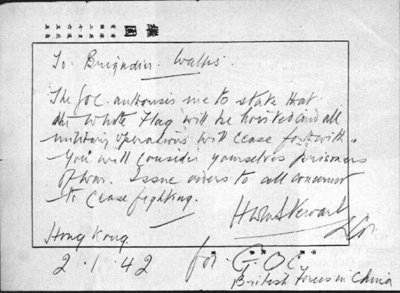 園
To. Brigadier. Wallis.
The GOC. authorises me to state that
the white flag will be hoisted and all
military operations will cease forthwith.
You will consider yourselves prisoners
of war. Issue orders to all concerned
to cease fighting.
HWM Stewart
Hong Kong
2.1.42 for. G.O.C.
British Forces in China